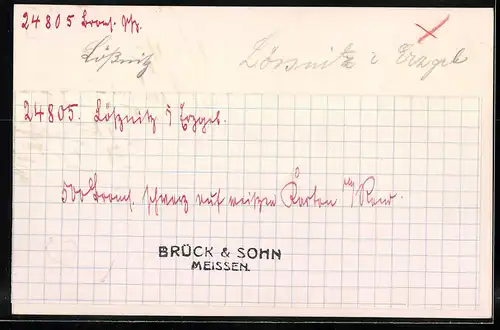 24805 Brom. Ptz.
Lößnitz Lössnitz i Erzgeb
24805. Lößnitz i Erzgeb.
500 Brom. schwarz auf weißen Karton m/ Rand.
BRÜCK & SOHN
MEISSEN.